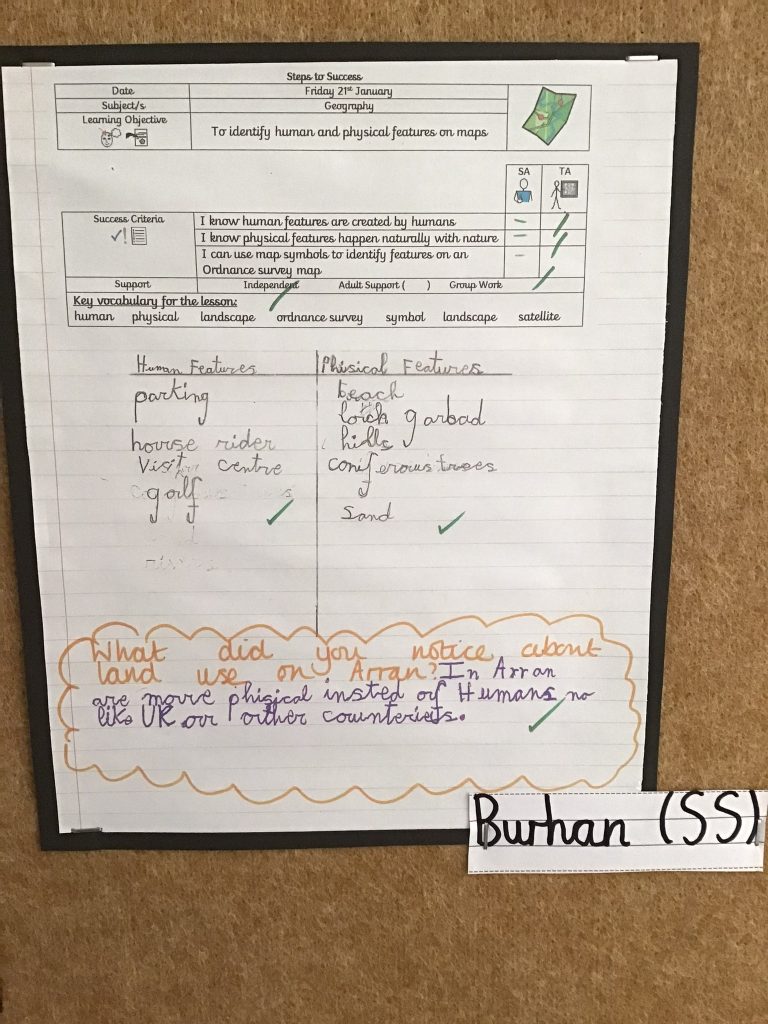 Steps to Success
Date Friday 21st January
Subject/s Geography
Learning Objective To identify human and physical features on maps
SA TA
Success Criteria I know human features are created by humans
I know physical features happen naturally with nature
I can use map symbols to identify features on an
Ordnance survey map
Support Independent Adult Support ( ) Group Work
Key vocabulary for the lesson:
human physical landscape ordnance survey symbol landscape satellite
Human Features Phisical Features
parking beach
loick garbad
hourse rider hills
Visitr centre coniferous trees
golf
Sand
What did you notice about
land use on Arran? In Arran
are moure phigical insted of Humans no
like UK our other counterieds.
Burhan (SS)